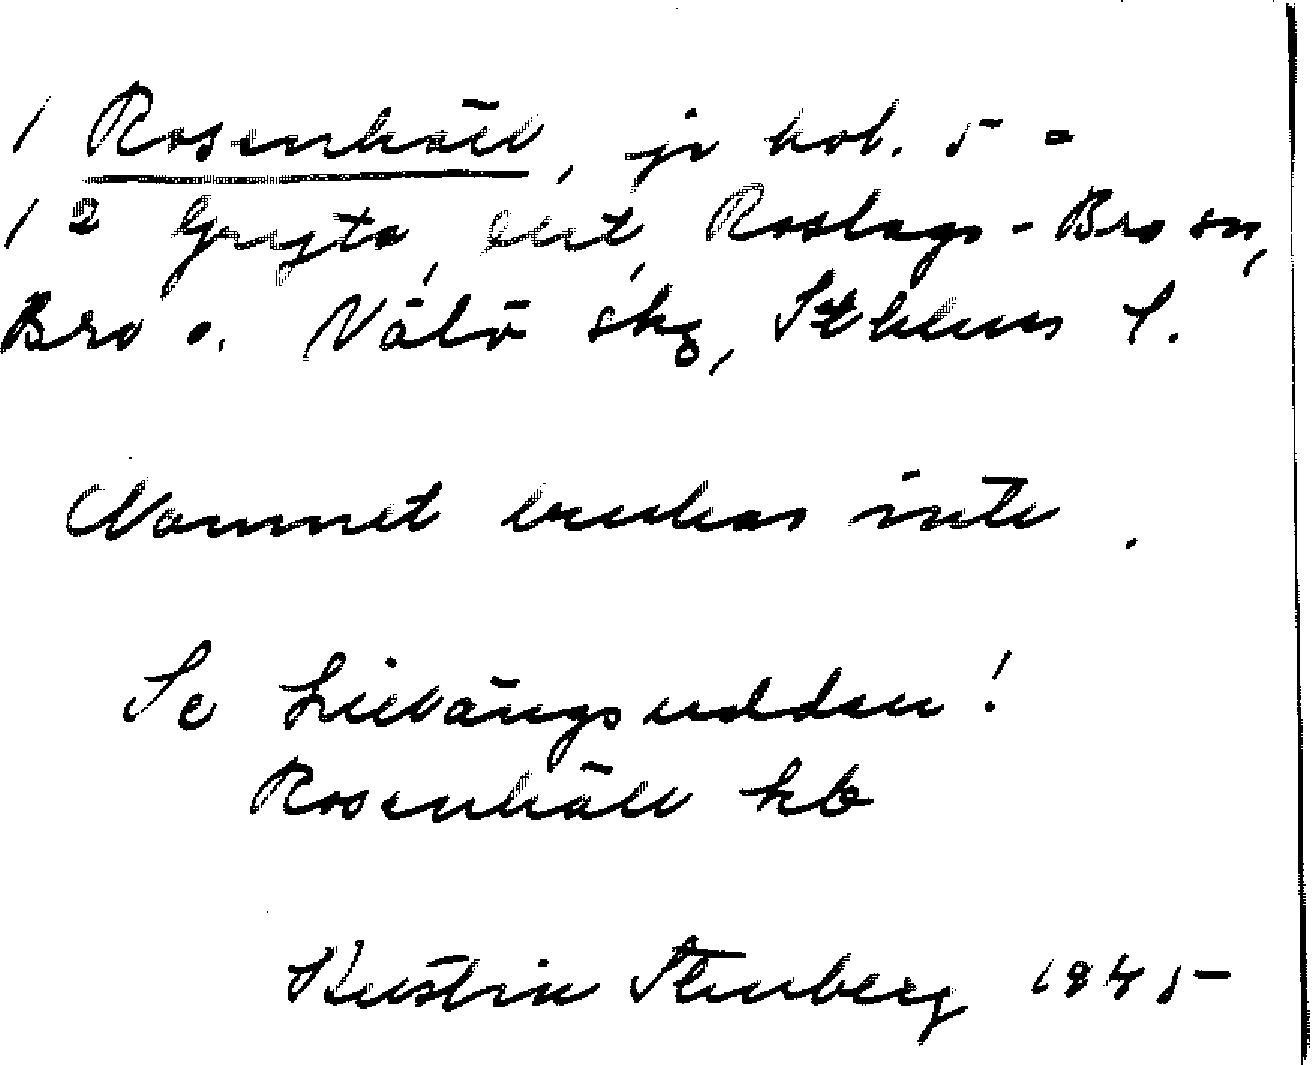 1 Rosenhäll, jr kob. 5 =
1 2 Gryta, Roslags-Bro sn,
Bro o. Vätö skg, Sthlms l.
Namnet brukas inte.
Se Lillängsudden!
Rosenhäll kb
Kerstin Stenberg 1945